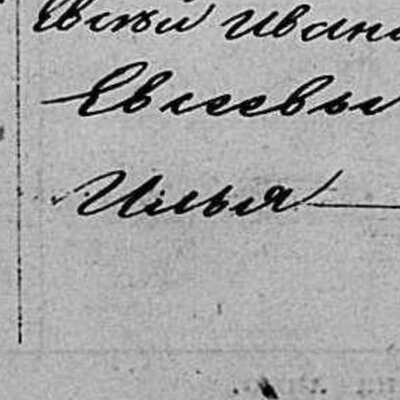 Евсѣй Иван
Евсеевы
Илья